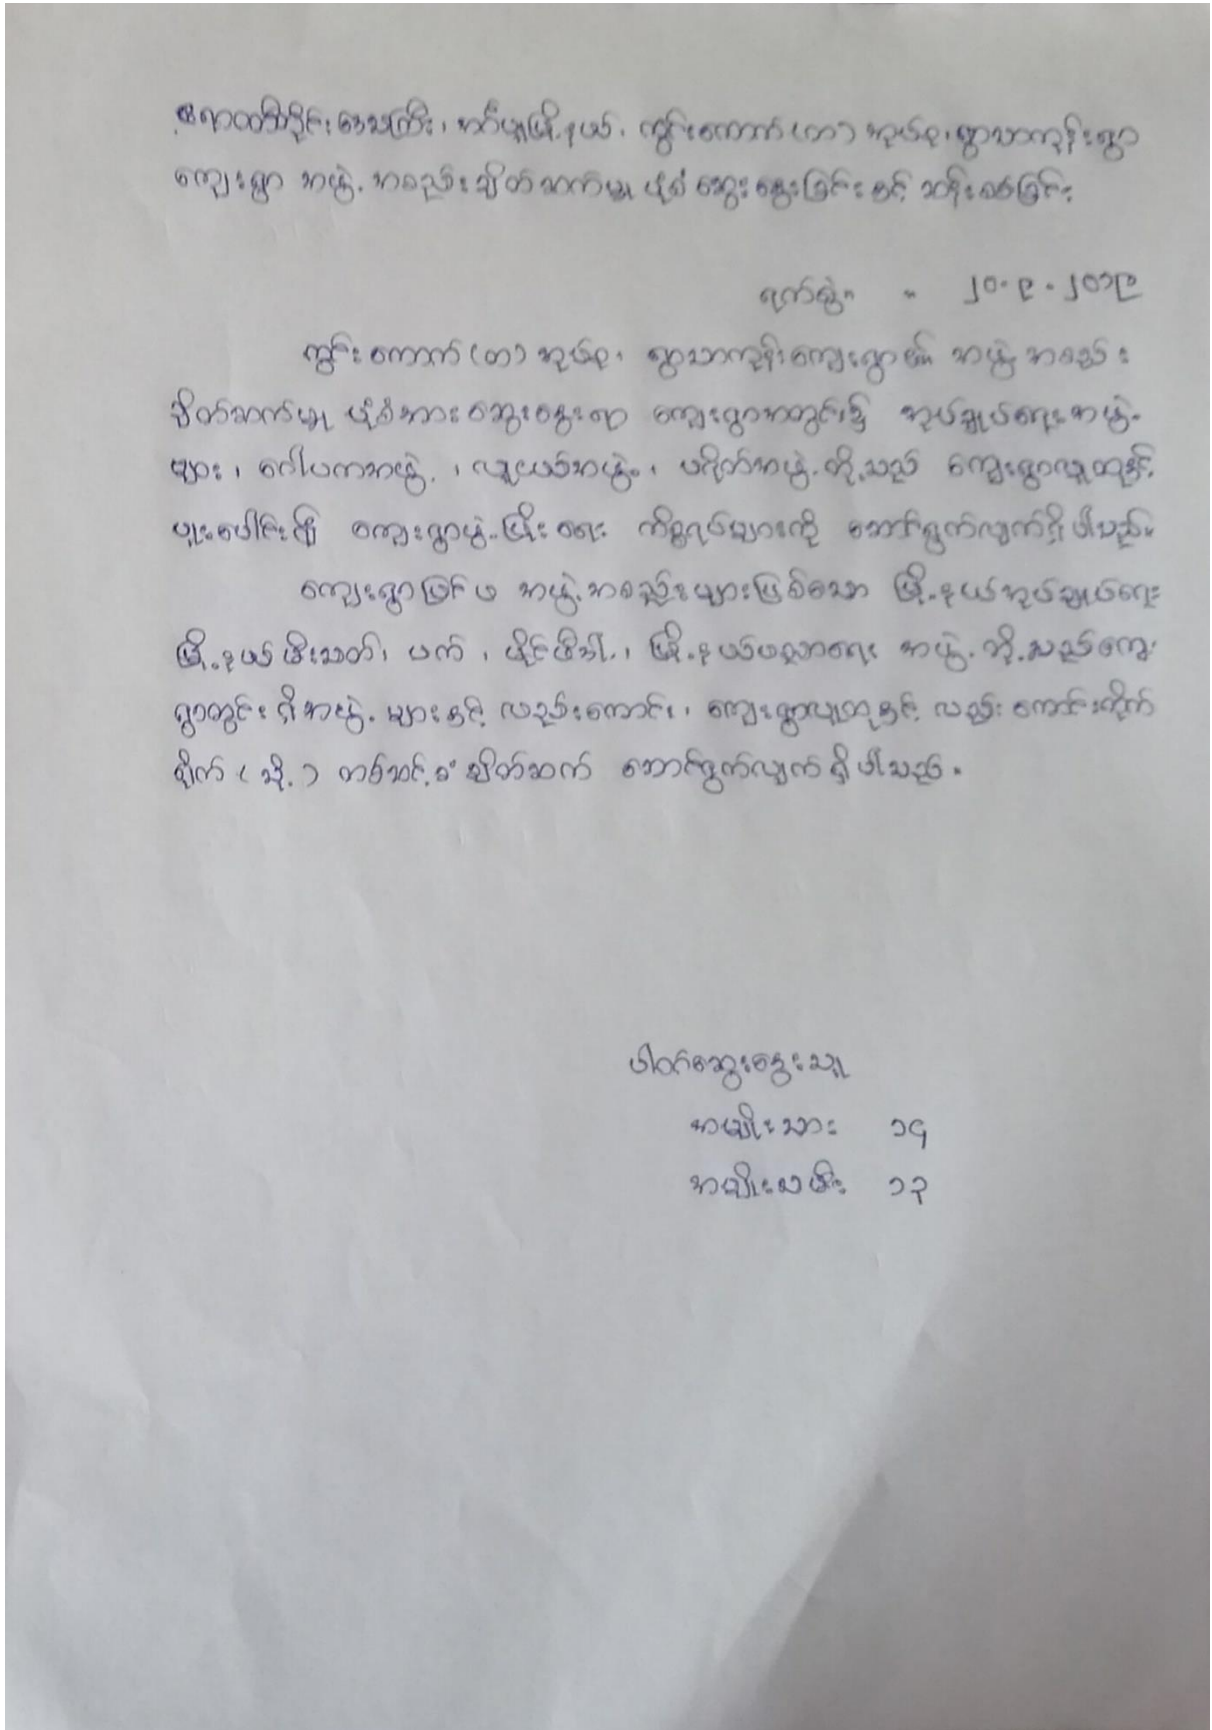 ဧရာဝတီတိုင်းဒေသကြီး၊ အင်္ဂပူမြို့နယ်၊ ကွင်းကောက်(တ)အုပ်စု၊ ရွာသာကုန်းရွာ
ကျေးရွာ အဖွဲ့အစည်းချိတ်ဆက်မှု ပုံစံ ဆွေးနွေးခြင်းနှင့် ဆန်းစစ်ခြင်း
ရက်စွဲ။ ။ ၂၀.၉.၂၀၁၉
ကွင်းကောက်(တ)အုပ်စု၊ ရွာသာကုန်းကျေးရွာ၏ အဖွဲ့အစည်း
ချိတ်ဆက်မှု ပုံစံအားဆွေးနွေးရာ ကျေးရွာအတွင်း၌ အုပ်ချုပ်ရေးအဖွဲ့
များ၊ ဂေါပကအဖွဲ့၊ လူငယ်အဖွဲ့၊ ပရဟိတအဖွဲ့တို့သည် ကျေးရွာလူထုနှင့်
ပူးပေါင်းပြီး ကျေးရွာဖွံ့ဖြိုးရေး ကိစ္စရပ်များကို ဆောင်ရွက်လျက်ရှိပါသည်။
ကျေးရွာပြင်ပ အဖွဲ့အစည်းများဖြစ်သော မြို့နယ်အုပ်ချုပ်ရေး
မြို့နယ်မီးသတ်၊ ပက်၊ မြို့နယ်ပညာရေး အဖွဲ့တို့သည်ကျေး
ရွာတွင်းရှိအဖွဲ့များနှင့် လည်းကောင်း၊ ကျေးရွာလူထုနှင့် လည်းကောင်းတိုက်
ရိုက် (သို့) တစ်ဆင့်ခံ ချိတ်ဆက် ဆောင်ရွက်လျက်ရှိပါသည်။
ပါဝင်ဆွေးနွေးသူ
အမျိုးသား ၁၄
အမျိုးသမီး ၁၃